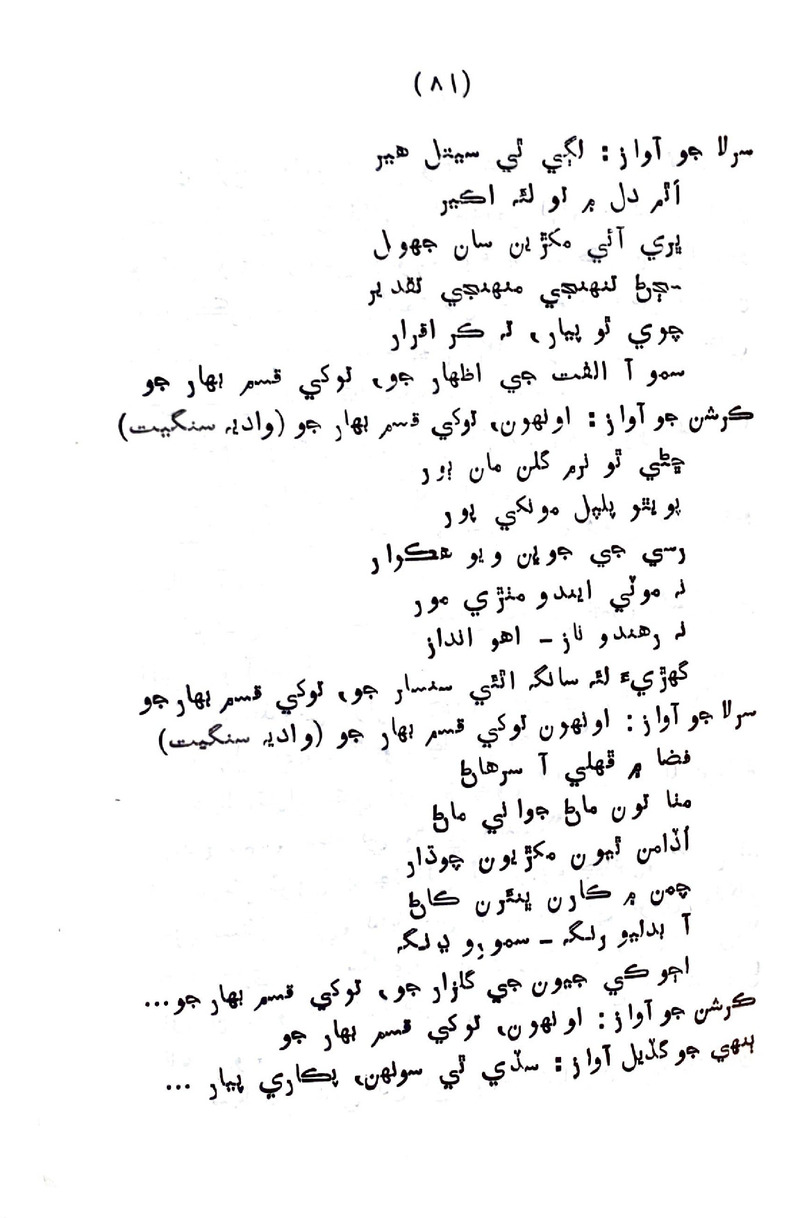 (۸۱)
سرلا جو آواز : لڳي ٿي سيتل هير
اُٿم دل ۾ تو لئہ اڪير
ڀري آئي مکڙين سان جهول
تنهنجي منهنجي تقدير
چوي ٿو پيار، تہ ڪر اقرار
سمو آ الفت جي اظهار جو، توکي قسم بهار جو
ڪرشن جو آواز : اونهون، توکي قسم بهار جو (واديہ سنگيت)
ڇڻي ٿو نرم گلن مان ٻور
پويتو پلپل مونکي پور
رسي جي جوڀن ويو هڪوار
نہ موٽي ايندو مٺڙي مور
نہ رهندو ناز - اهو انداز
گهڙيءَ لئہ سانگہ اٿئي سنسار جو، توکي قسم بهار جو
سرلا جو آواز : اونهون توکي قسم بهار جو (واديہ سنگيت)
فضا ۾ ڦهلي آ سرهاڻ
مٺا تون ماڻ جواني ماڻ
اُڏامن ٿيون مکڙيون چوڌار
چمن ۾ ڪارن ڀنئرن ڪاڻ
آ بدليو رنگہ - سمورو ڍنگہ
اچو ڪي جيون جي گلزار جو، توکي قسم بهار جو...
ڪرشن جو آواز : اونهون، توکي قسم بهار جو
ٻنهي جو گڏيل آواز : سڏي ٿي سونهن، پڪاري پيار ...